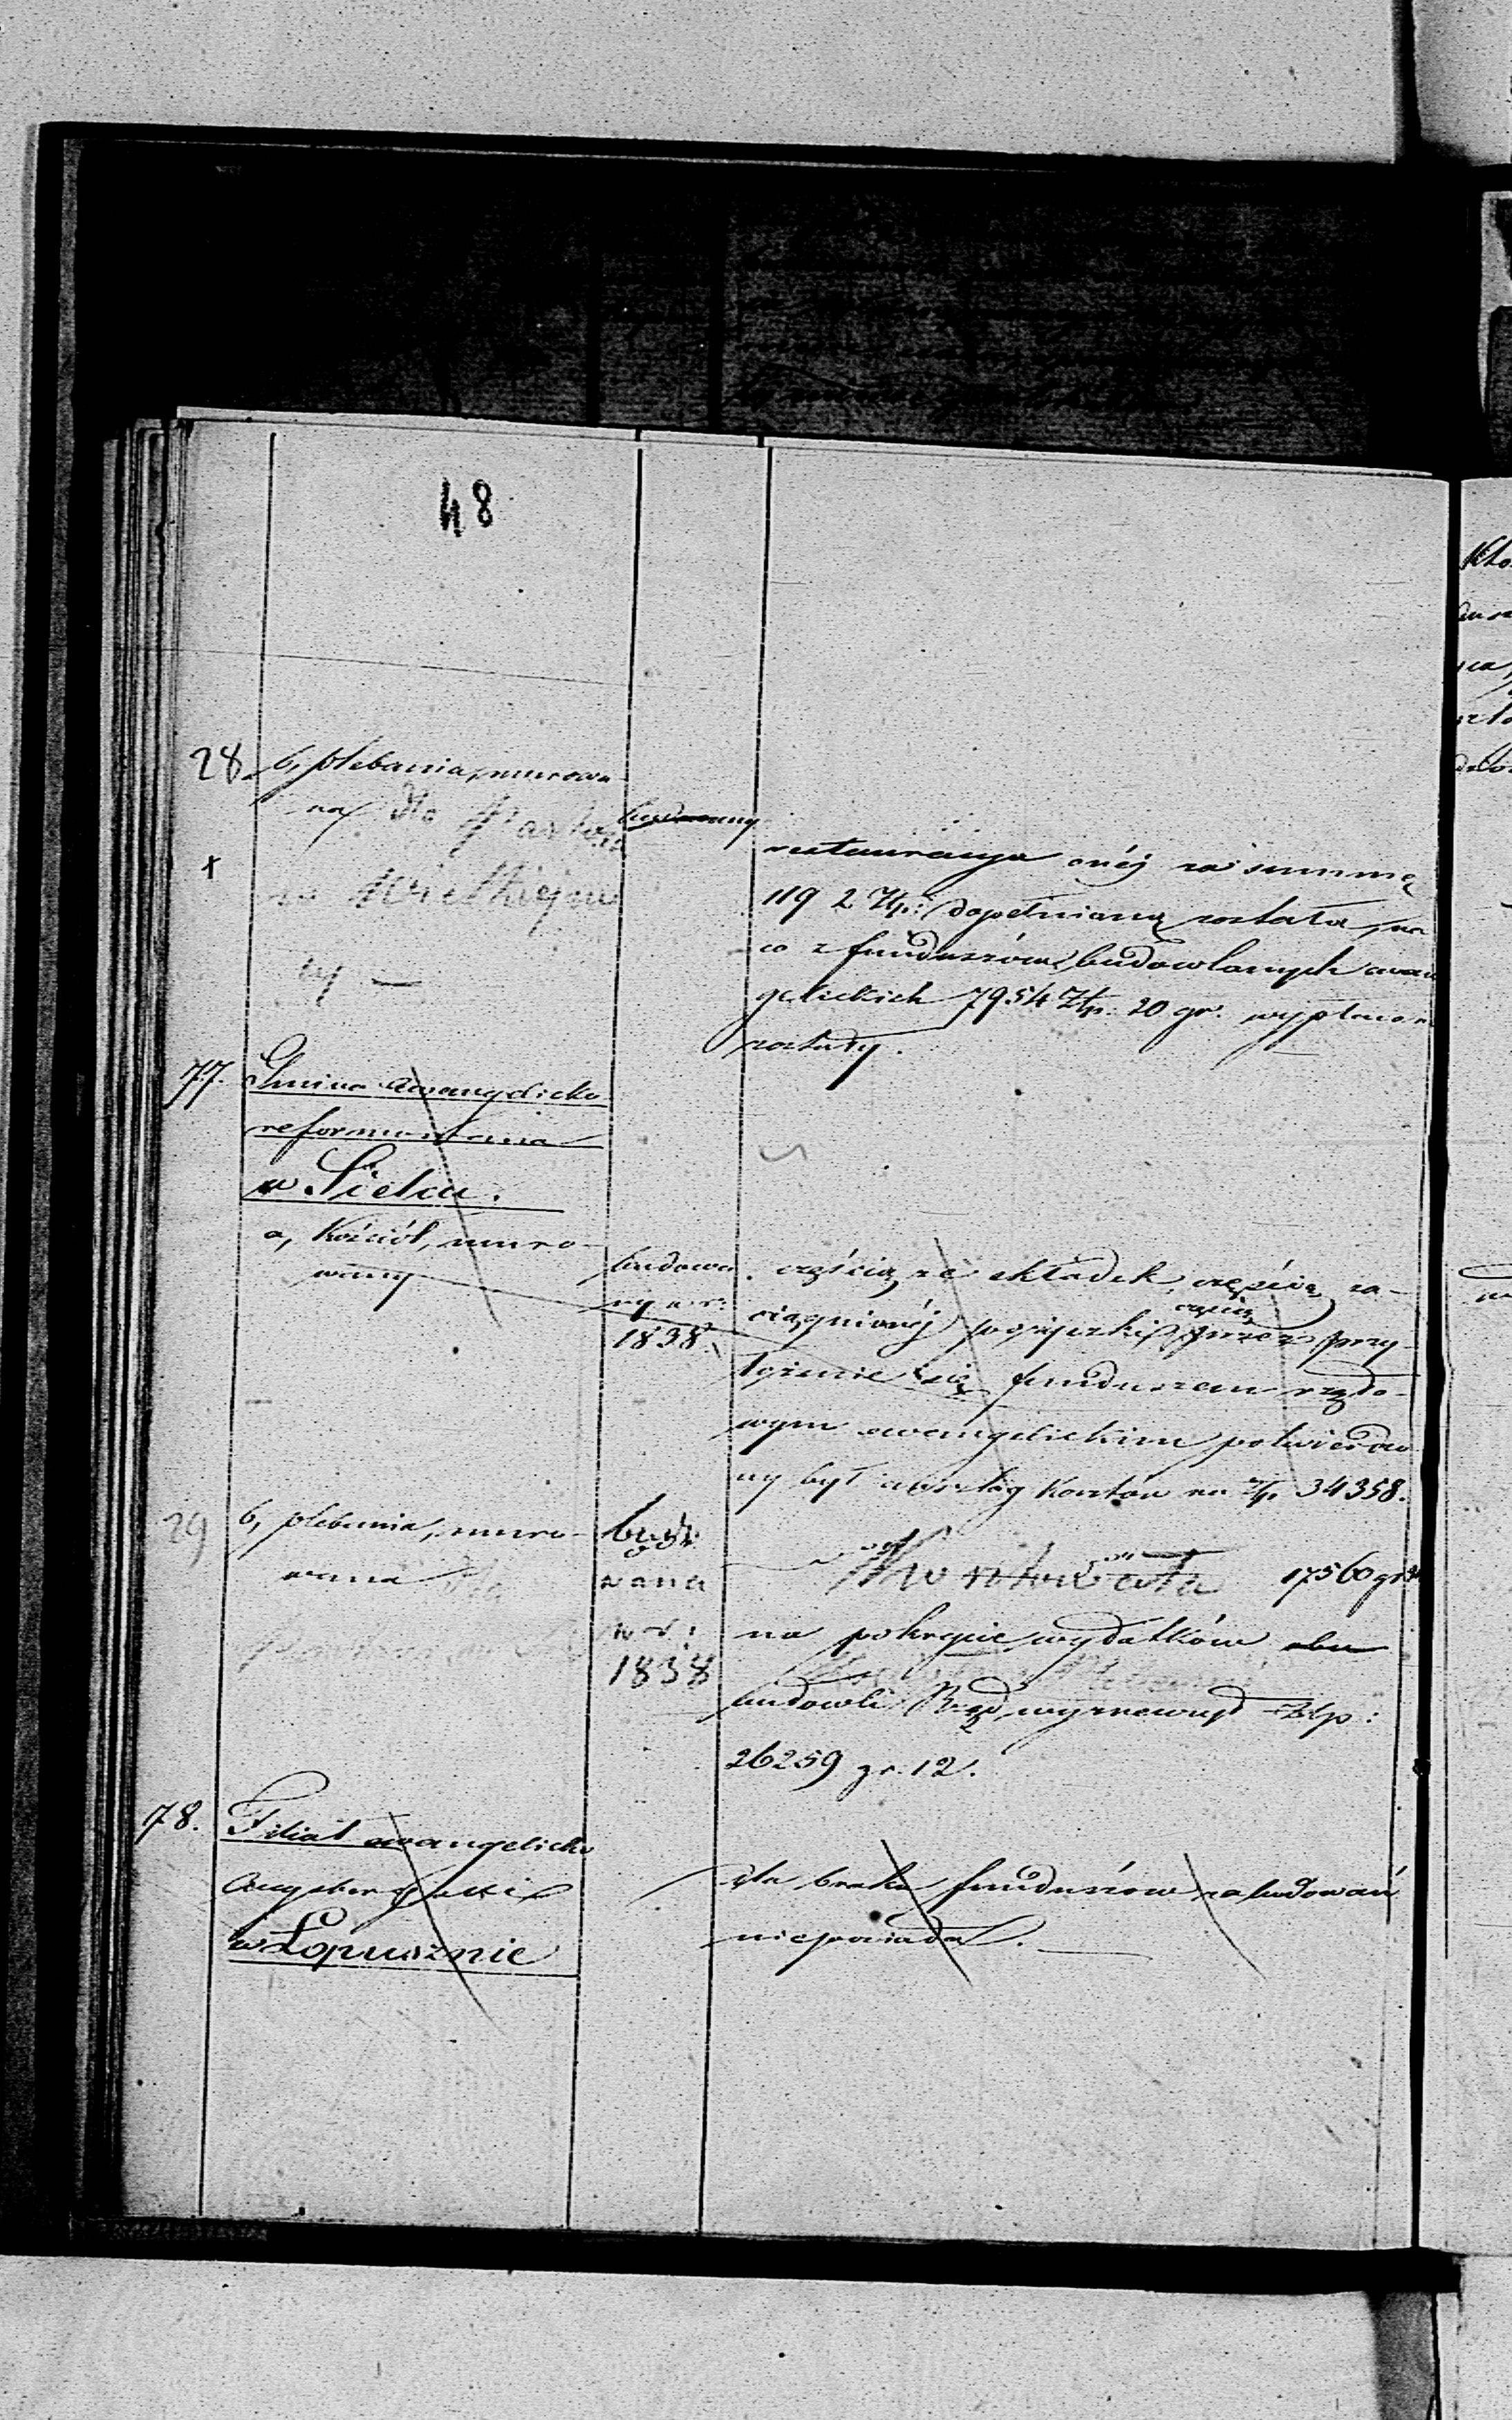 48
28. b, plebania, murowa-
na dla Pastora
budowany
x
w Wielkiej
restauracya onéj za summę
1192 Złp: dopełnioną została, na
co z funduszów budowlanych ewan
gelickich 7954 Złp. 20 gr. wypłacon
zostały.
77. Gmina ewangelicko
reformowana
w Sielcu.
a, Kościół, muro-
wany
budowa
ny w r:
1838.
częścią ze składek, częścią za-
ciągnionéj pożyczki częścią przez przy-
łożenie się funduszem rządo-
wym ewangelickim potwierdzo
ny był anszlag kosztów na Złp 34358.
29 b, plebania, muro-
wana dla
budo
wana
w r:
1838
Kosztowała 17560 gr
na pokrycie wydatków obu
budowli Rząd wyznaczył Złp:
26259 gr. 12.
78. Filiał ewangelicko
Augsburgski
w Łopusznie
dla braku funduszów zabudowań
nieposiada.